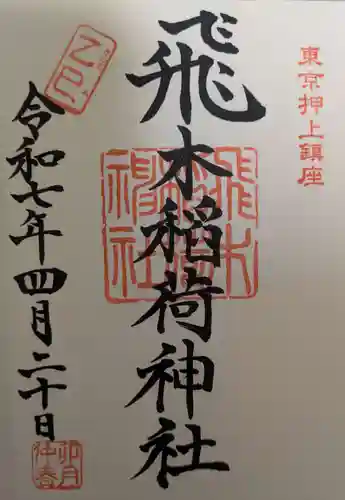 東京押上鎮座
飛木稲荷神社
飛木稲荷神社
令和七年四月二十日
卯月
仲春